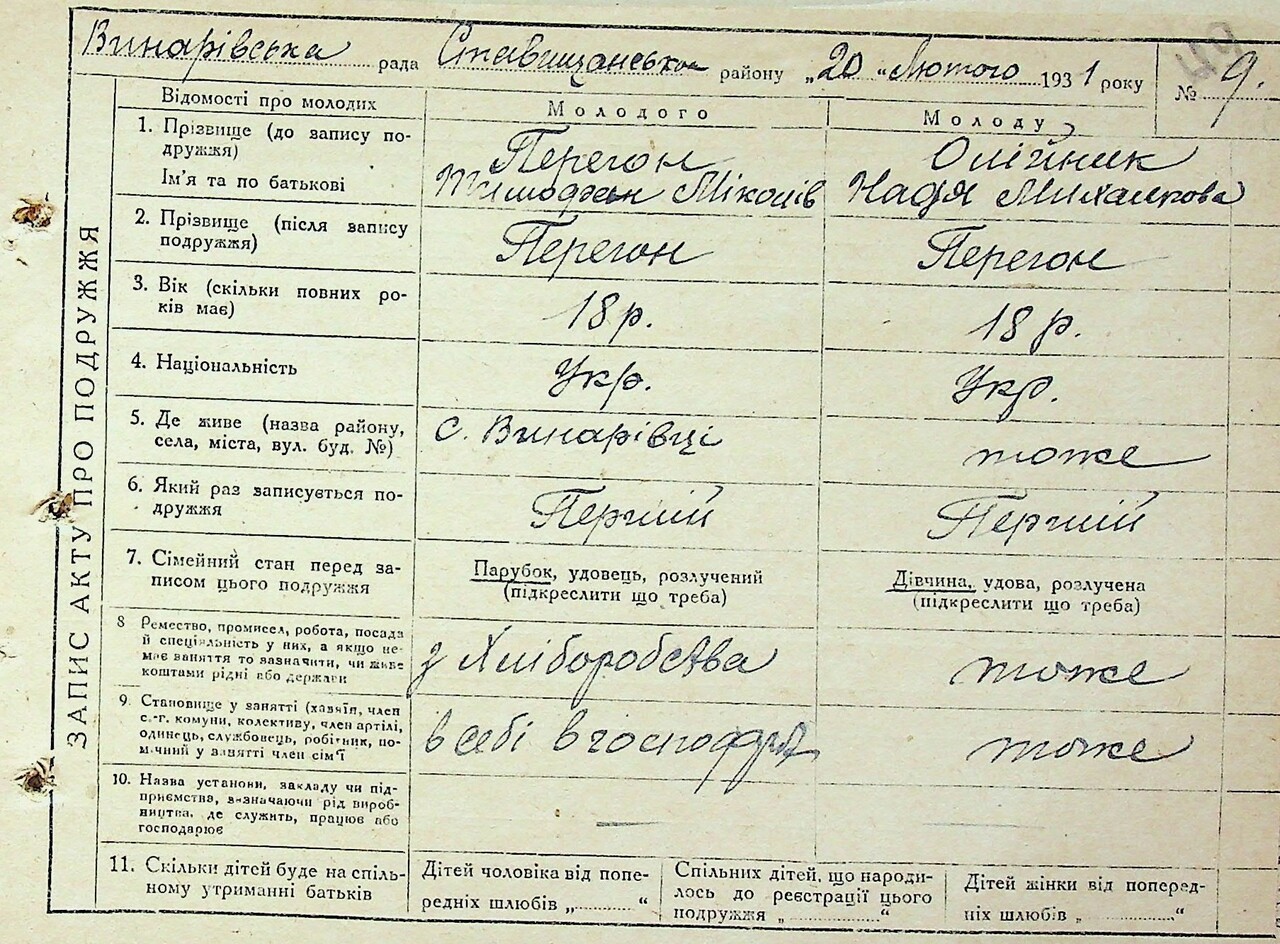 Винарівська рада Ставищанська району „20" Лютого 1931 року № 9.
49
Відомості про молодих
Молодого
Молоду
1. Прізвище (до запису по-
дружжя)
Ім'я та по батькові
Перегон
Міколів
Олійник
Надя Михалкова
2. Прізвище (після запису
подружжя)
Перегон
Перегон
3. Вік (скільки повних ро-
ків має)
18 р.
18 р.
4. Національність
Укр.
Укр.
5. Де живе (назва району,
села, міста, вул. буд. №)
с. Винарівці
тоже
6. Який раз записується по-
дружжя
Перший
Перший
7. Сімейний стан перед за-
писом цього подружжя
Парубок, удовець, розлучений
(підкреслити що треба)
Дівчина, удова, розлучена
(підкреслити що треба)
8 Ремество, промисел, робота, посада
й спеціяльність у них, а якщо не-
має заняття то зазначити, чи живе
коштами рідні або держави
з Хліборобства
тоже
9. Становище у занятті (хазяїн, член
с.-г. комуни, колективу, член артілі,
одинець, службовець, робітник, по-
мічний у занятті член сім'ї
в себі в господ
тоже
10. Назва установи, закладу чи під-
приємства, визначаючи рід вироб-
ництва, де служить, працює або
господарює
11. Скільки дітей буде на спіль-
ному утриманні батьків
Дітей чоловіка від попе-
редніх шлюбів „............“
Спільних дітей, що народи-
лось до реєстрації цього
подружжя „..............“
Дітей жінки від поперед-
ніх шлюбів „..............“
ЗАПИС АКТУ ПРО ПОДРУЖЖЯ